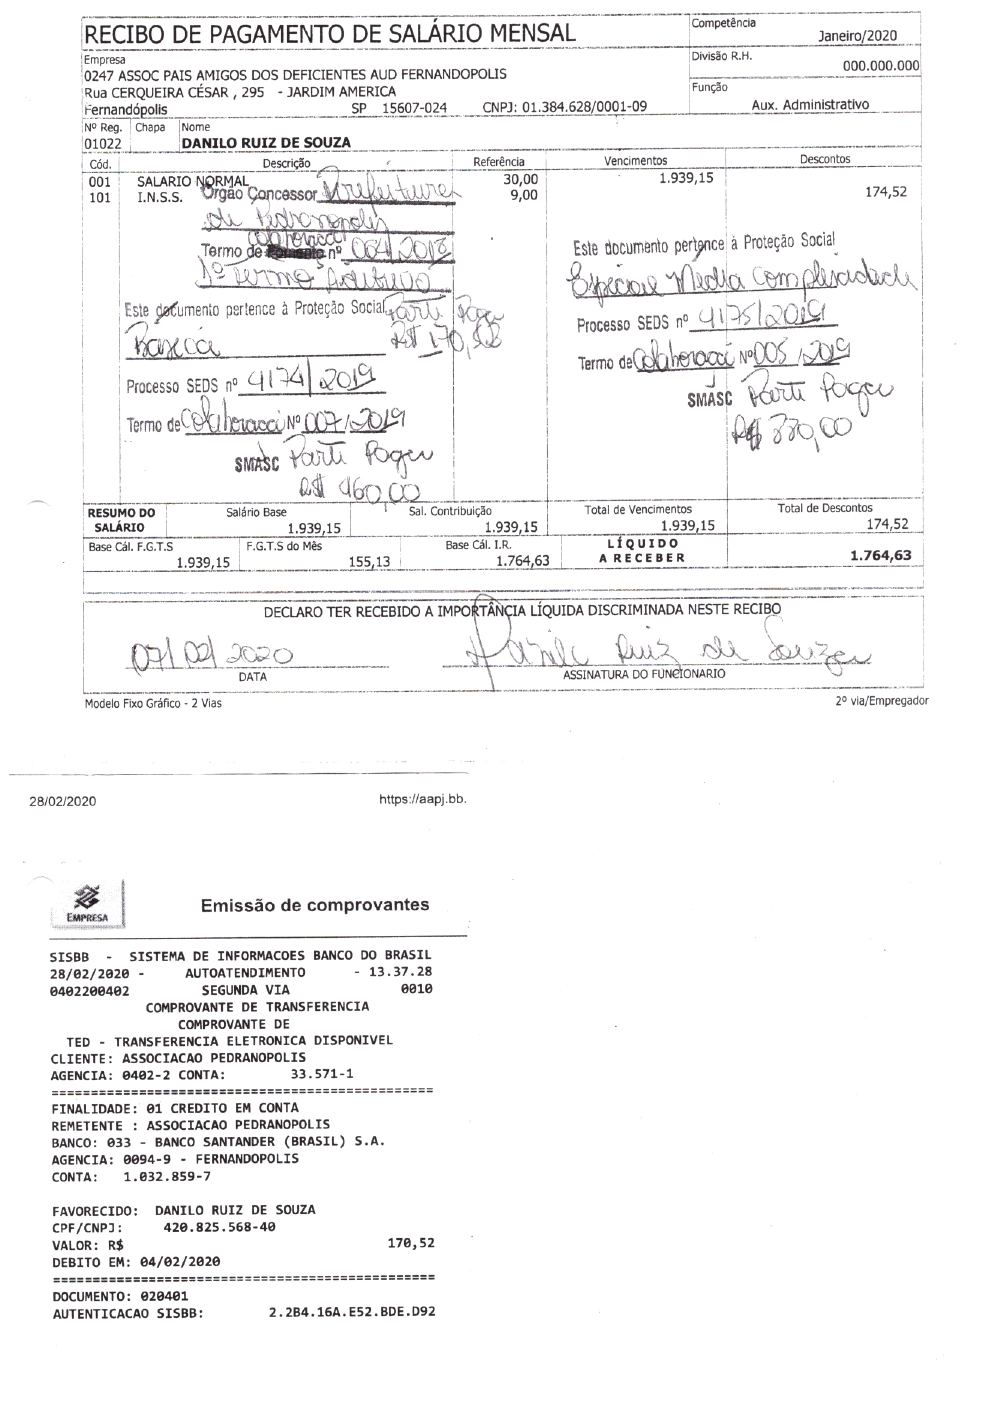 RECIBO DE PAGAMENTO DE SALÁRIO MENSAL
Competência
Janeiro/2020
Empresa
0247 ASSOC PAIS AMIGOS DOS DEFICIENTES AUD FERNANDOPOLIS
Rua CERQUEIRA CÉSAR , 295 - JARDIM AMERICA
Fernandópolis SP 15607-024 CNPJ: 01.384.628/0001-09
Divisão R.H.
000.000.000
Função
Aux. Administrativo
Nº Reg. Chapa Nome
01022 DANILO RUIZ DE SOUZA
Cód. Descrição Referência Vencimentos Descontos
001 SALARIO NORMAL 30,00 1.939,15
101 I.N.S.S. 9,00 174,52
Órgão Concessor Prefeitura
de Pedranopolis
Colaboraçã
Termo de nº 004/2018
1º Termo Aditivo
Parti Pagu
R$ 170,52
Este documento pertence à Proteção Social
Basica
Processo SEDS nº 4174/2019
Termo de Colaboraçã Nº 007/2019
SMASC Parti Pagu
R$ 460,00
Este documento pertence à Proteção Social
Especial Média Complexidade
Processo SEDS nº 4175/2019
Termo de Colaboraçã Nº 005/2019
SMASC Parti Pagu
R$ 330,00
RESUMO DO SALÁRIO
Salário Base Sal. Contribuição Total de Vencimentos Total de Descontos
1.939,15 1.939,15 1.939,15 174,52
Base Cál. F.G.T.S F.G.T.S do Mês Base Cál. I.R. LÍQUIDO A RECEBER
1.939,15 155,13 1.764,63 1.764,63
DECLARO TER RECEBIDO A IMPORTÂNCIA LÍQUIDA DISCRIMINADA NESTE RECIBO
07/02/2020 Danilo Ruiz de Souza
DATA ASSINATURA DO FUNCIONARIO
Modelo Fixo Gráfico - 2 Vias 2º via/Empregador
28/02/2020 https://aapj.bb.
EMPRESA
Emissão de comprovantes
SISBB - SISTEMA DE INFORMACOES BANCO DO BRASIL
28/02/2020 - AUTOATENDIMENTO - 13.37.28
0402200402 SEGUNDA VIA 0010
COMPROVANTE DE TRANSFERENCIA
COMPROVANTE DE
TED - TRANSFERENCIA ELETRONICA DISPONIVEL
CLIENTE: ASSOCIACAO PEDRANOPOLIS
AGENCIA: 0402-2 CONTA: 33.571-1
================================================
FINALIDADE: 01 CREDITO EM CONTA
REMETENTE : ASSOCIACAO PEDRANOPOLIS
BANCO: 033 - BANCO SANTANDER (BRASIL) S.A.
AGENCIA: 0094-9 - FERNANDOPOLIS
CONTA: 1.032.859-7
FAVORECIDO: DANILO RUIZ DE SOUZA
CPF/CNPJ: 420.825.568-40
VALOR: R$ 170,52
DEBITO EM: 04/02/2020
================================================
DOCUMENTO: 020401
AUTENTICACAO SISBB: 2.2B4.16A.E52.BDE.D92